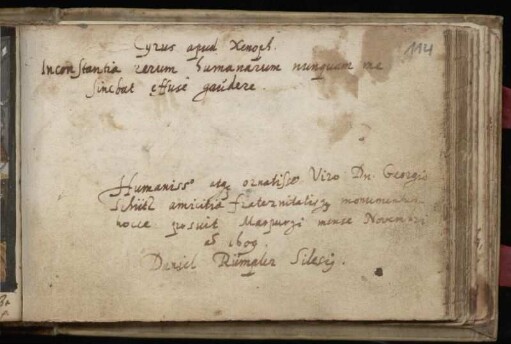 Cyrus apud Xenoph.
114
Inconstantia rerum humanarum nunquam me
sinebat effuse gaudere.
Humaniss° atq; ornatiss° Viro Dn. Georgio
amicitiæ fraternitatisq; monumentum
hocce posuit Marpurgi mense Novembri
1609.
Daniel Rümpler Siles9.